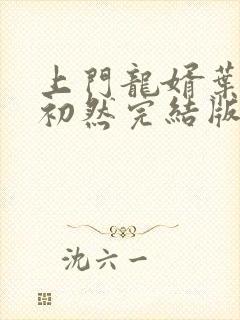 上門龍婿葉
初然完結版
沈六一